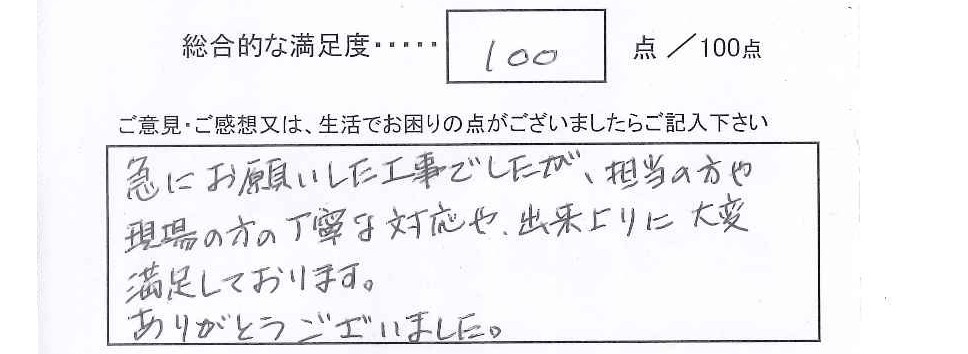 総合的な満足度・・・・・ 100 点 ／100点
ご意見・ご感想又は、生活でお困りの点がございましたらご記入下さい
急にお願いした工事でしたが、担当の方や
現場の方の丁寧な対応や、出来上りに大変
満足しております。
ありがとうございました。